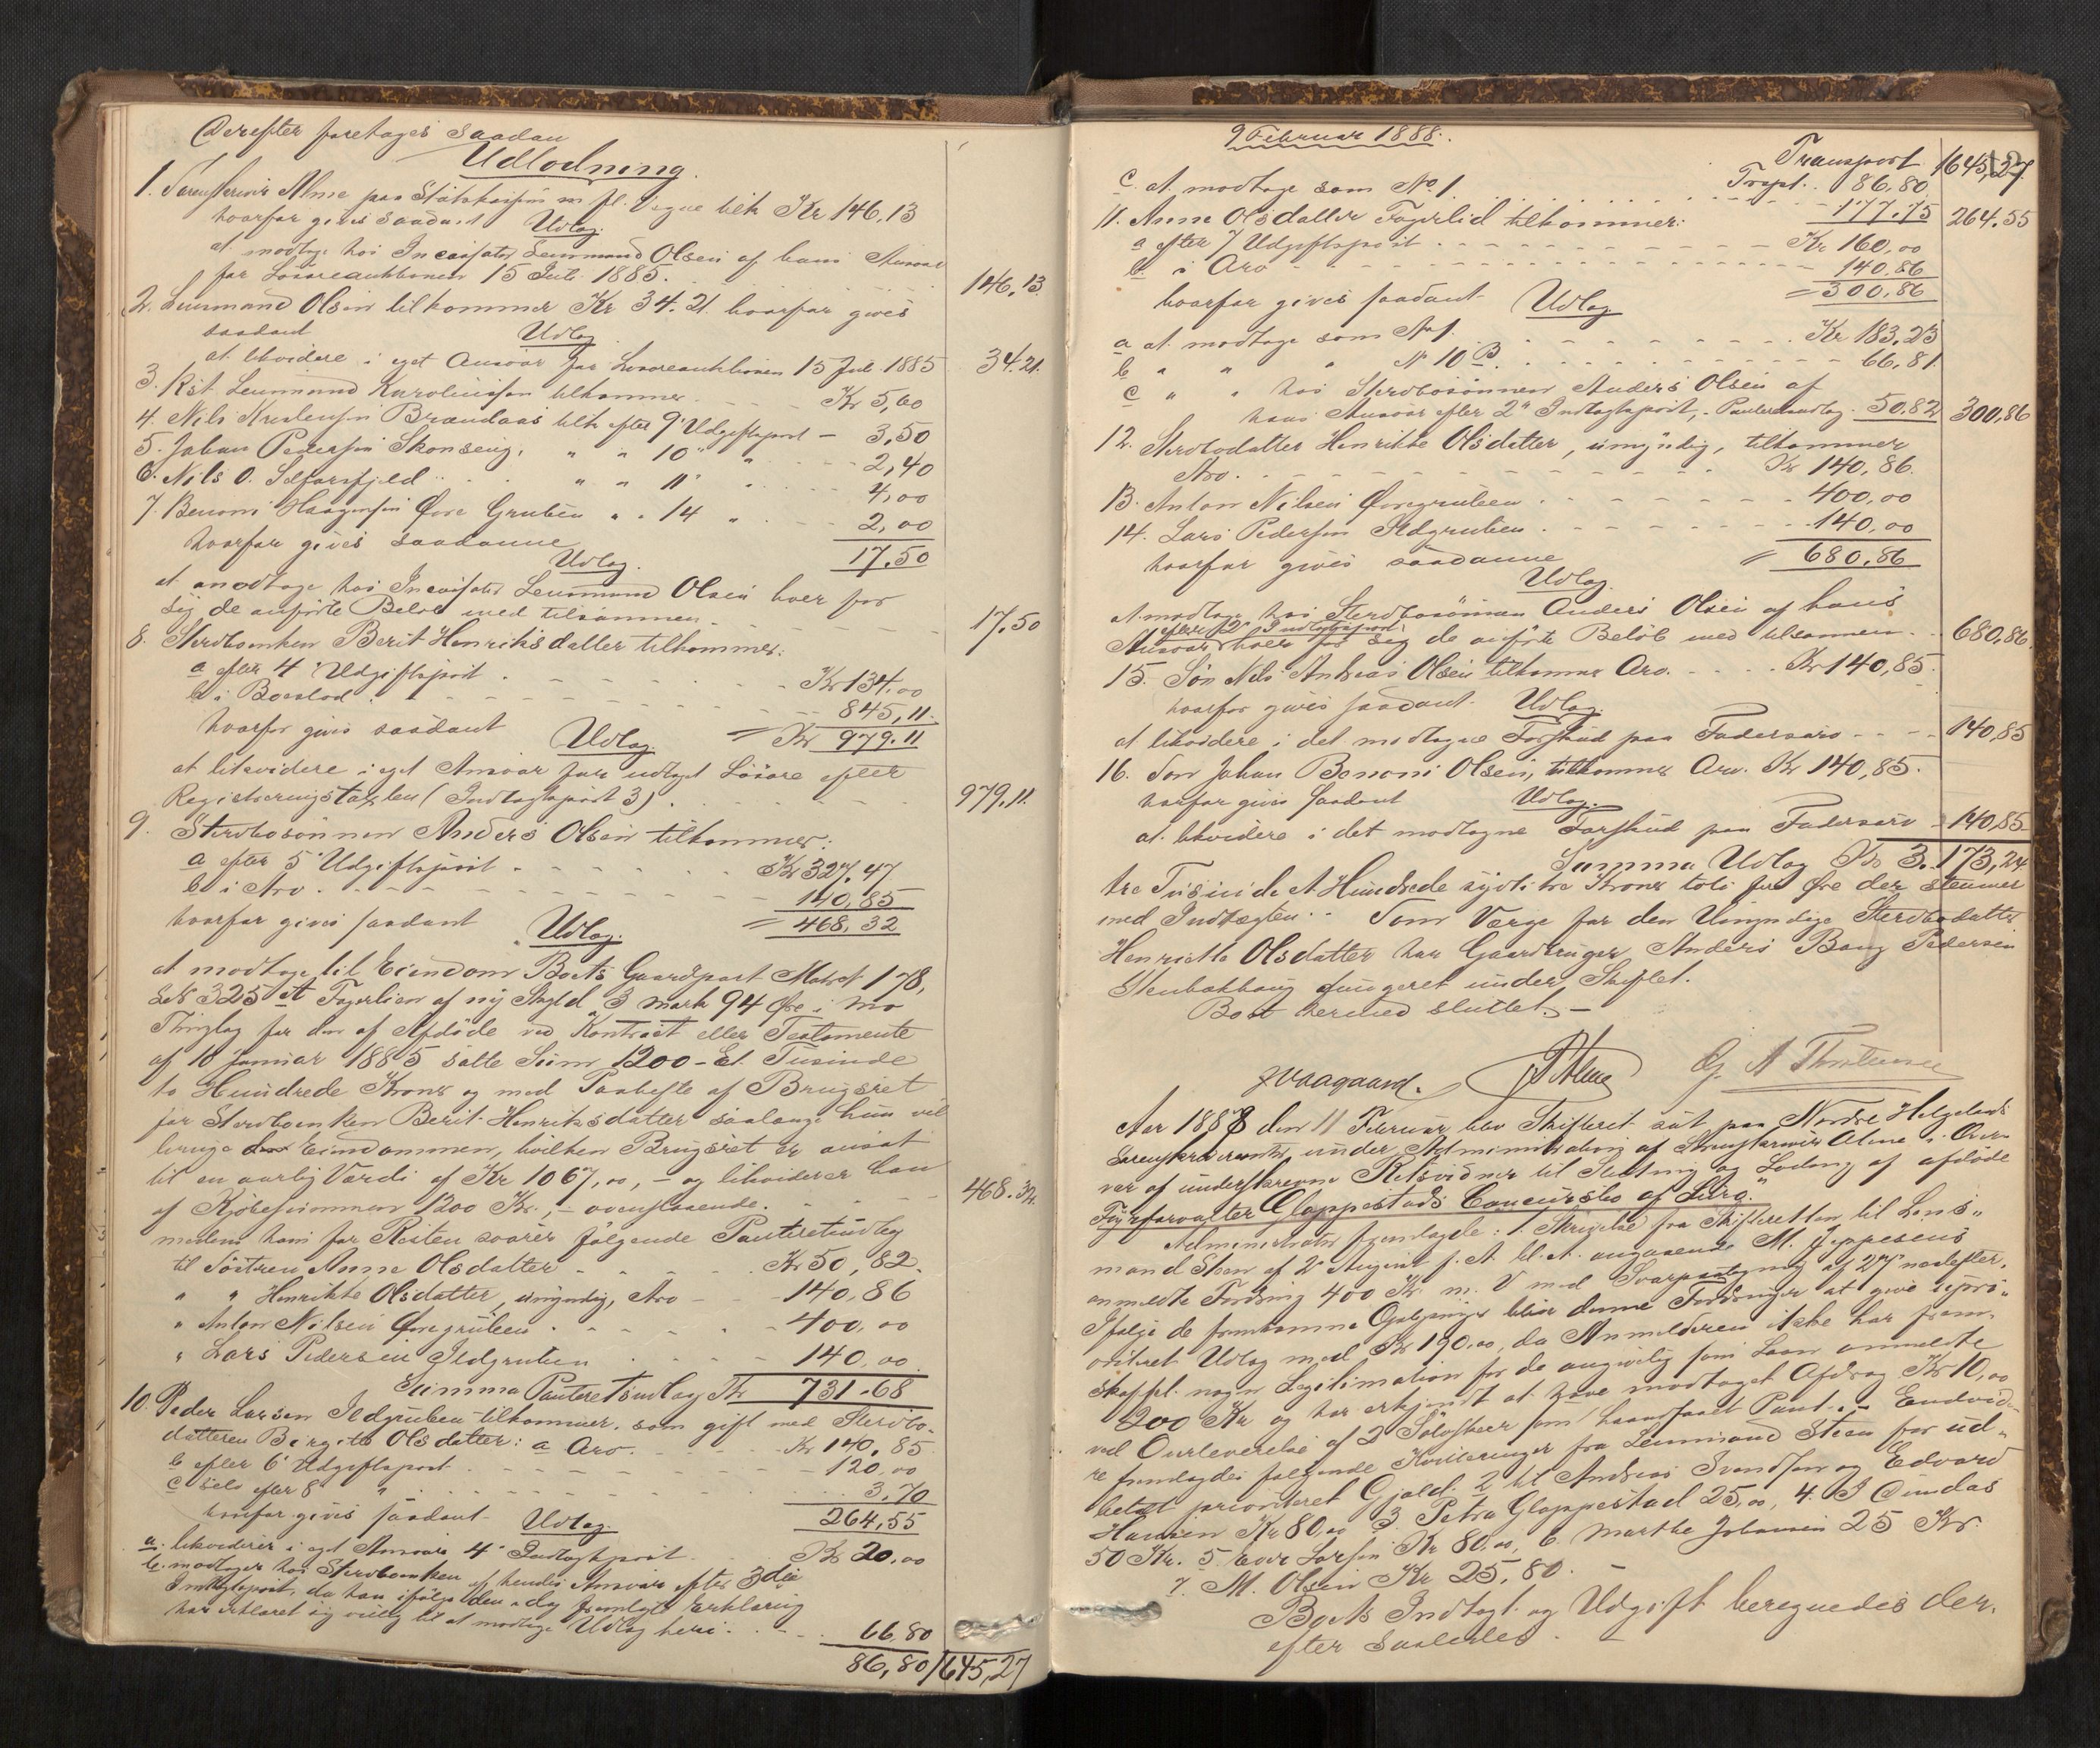 Derefter foretages saadan
Udlodning.
1. Sorenskriver Alme paa Statskassen m fl. Vegne tilk Kr 146,13
hvorfor gives saadant Udlæg.
at modtage hos Incassator Lensmand Olsen af hans Ansvar
for Løsøreauktionen 15 Juli 1885. 146,13.
2. Lensmand Olsen tilkommer Kr 34.21. hvorfor gives
saadant Udlæg
at likvidere i eget Ansvar for Løsøreauktionen 15 Juli 1885 34.21.
3. Kst. Lensmand Karoliussen tilkommer Kr 5,60
4. Nils Brændaas tilk efter 9 Udgiftspost - 3,50
5. Johan Pedersen Skonseng, " " 10 " 2,40
6. Nils O. Selforsfjeld " " 11 " 4,00
7. Benoni Haagensen Øvre Gruben " " 14 " 2,00
hvorfor gives saadanne 17.50
Udlæg.
at modtage hos Incassator Lensmand Olsen hver for
sig de anførte Beløb med tilsammen 17.50
8. Sterboenken Berit Henriksdatter tilkommer:
a efter 4 Udgiftspost Kr 134,00
b i Boeslod 845,11.
hvorfor gives saadant Udlæg. = Kr 979.11
at likvidere i eget Ansvar for udtaget Løsøre efter
Registreringstaxten (Indtægtspost 3) 979.11.
9. Sterbosønnen Anders Olsen tilkommer:
a efter 5 Udgiftspost Kr 327.47
b i Arv 140,85
hvorfor gives saadant Udlæg. = 468,32
at modtage til Eiendom Boets Gaardpart Matr. 178,
LN 325 A Fagerlien af ny Skyld 3 mark 94 Øre i Mo
Thinglag for den af Afdøde ved Kontract eller Testamente
af 10 Januar 1885 satte Sum 1200 - Et Tusinde
to Hundrede Kroner og med Paahefte af Brugsret
for Sterboenken Berit Henriksdatter saalænge hun vil
bruge Eiendommen, hvilken Brugsret er ansat
til en aarlig Værdi af Kr 1067,00, - og likviderer han
af Kjøbesummen 1200 Kr, - ovenstaaende 468.32.
medens han for Resten svarer følgende Panteretsudlæg
til Søstren Anne Olsdatter Kr 50,82.
" " Henrikke Olsdatter, umyndig, Arv 140,86
" Anton Nilsen Øvregruben 400,00
" Lars Pedersen Ildgruben 140,00
Summa Panteretsudlæg Kr 731.68
10. Peder Larsen Ildgruben tilkommer, som gift med Sterbo-
datteren Birgitte Olsdatter: a Arv Kr 140,85
b efter 6 Udgiftspost 120,00
c selv efter 8 " 3,70
hvorfor gives saadant Udlæg 264,55
a. likviderer i eget Ansvar 4 Indtægtspost Kr 20,00
b. modtager hos Sterboenken af hendes Ansvar efter 3die
Indtægtspost, da han ifølge den i dag fremlagte Erklæring
har erklæret sig villig til at modtage Udlæg heri 66,80
86,80 1645,27
9 Februar 1888.
Transport 1645,27
Trspt. 86,80
c. at modtage som No 1 177,75 264.55
11. Anne Olsdatter Fagerlid tilkommer:
a efter 7 Udgiftspost Kr 160,00
b i Arv 140,86
hvorfor gives saadant Udlæg = 300,86
a at modtage som No 1. Kr 183,23
b " " " N 10 B 66,81.
c " " hos Sterbosønnen Anders Olsen af
hans Ansvar efter 2 Indtægtspost, - Panteretsudlæg 50.82 300,86
12. Sterbodatter Henrikke Olsdatter, umyndig, tilkommer
Arv Kr 140,86.
13. Anton Nilsen Øvregruben 400,00
14. Lars Pedersen Ildgruben 140,00
hvorfor gives saadanne = 680,86
Udlæg.
at modtage hos Sterbosønnen Anders Olsen af hans
efter 2 Indtægtspost
Ansvar hver for sig de anførte Beløb med tilsammen 680,86.
15. Søn Nils Andreas Olsen tilkommer Arv. Kr 140,85.
hvorfor gives saadant Udlæg.
at likvidere i det modtagne Forskud paa Fadersarv 140,85
16. Søn Johan Benoni Olsen, tilkommer Arv. Kr 140,85.
hvorfor gives saadant Udlæg.
at likvidere i det modtagne Forskud paa Fadersarv 140,85
Summa Udlæg Kr 3.173,24
tre Tusinde et Hundrede sytti tre Kroner toti fire Øre der stemmer
med Indtægten. Som Værge for den Umyndige Sterbodatter
Henrikke Olsdatter har Gaardbruger Anders Bang Pedersen
Stenbakhaug fungeret under Skiftet.
Boet hermed sluttet. -
P Alme
Aar 1888 den 11 Februar blev Skifteret sat paa Nordre Helgelands
Sorenskriverkontor, under Administration af Sorenskriver Alme i Over-
vær af underskrevne Retsvidner til Slutning og Lodning af afdøde
Fyrforvalter Gloppestads Concursbo af Lurø.
Administrator fremlagde: 1. Skrivelse fra Skifteretten til Lens-
mand Steen af 2 August f. A. bl. A. angaaende M. Jeppesens
anmeldte Fordring 400 Kr. m. V med Svarpaategning af 27 næstefter.
Ifølge de fremkomne Oplysninger blir denne Fordringer at give uprio-
riteret Udlæg med Kr 190,00, da Anmelderen ikke har frem-
skaffet nogen Legitimation for de angivelig som Laan anmeldte
200 Kr og har erkjendt at have modtaget Afdrag Kr 10,00
ved Overleverelse af 2 Sølvskeer som haandfaaet Pant. - Endvide-
re fremlagdes følgende Kvitteringer fra Lensmand Steen for ud-
betalt prioriteret Gjæld: 2 til Andreas Svendsen og Edvard
Hansen Kr 80,00 3 Petra Gloppestad 25,00, 4. I Dundas
50 Kr. 5 Larsen Kr 80,00, 6 Marthe Johansen 25 Kr.
7. M. Olsen Kr 25,80. -
Boets Indtægt og Udgift beregnedes der-
efter saaledes. -